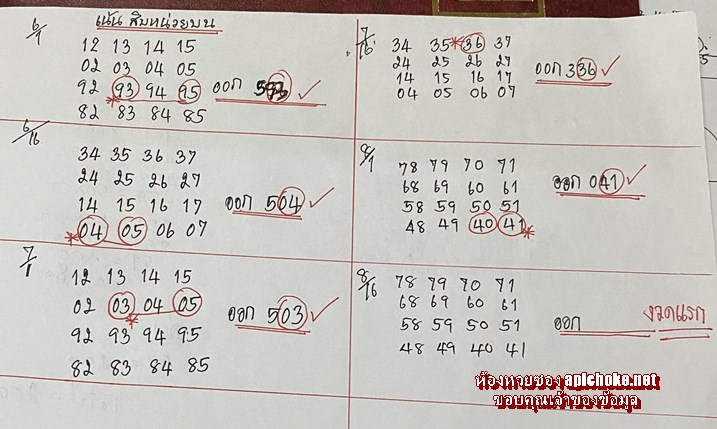 เน้น สิบหน่วยบน
6/1
12 13 14 15
02 03 04 05
92 93 94 95 ออก 593 ✓
82 83 84 85
6/16
34 35 36 37
24 25 26 27
14 15 16 17 ออก 504 ✓
*04 05 06 07
7/1
12 13 14 15
02 03 04 05 ออก 503 ✓
92 93* 94 95
82 83 84 85
7/16
34 35 *36 37
24 25 26 27 ออก 336 ✓
14 15 16 17
04 05 06 07
8/1
78 79 70 71
68 69 60 61 ออก 041 ✓
58 59 50 51
48 49 40 41*
8/16
78 79 70 71
68 69 60 61 งวดแรก
58 59 50 51 ออก
48 49 40 41
ห้องหวยซอง apichoke.net
ขอบคุณเจ้าของข้อมูล